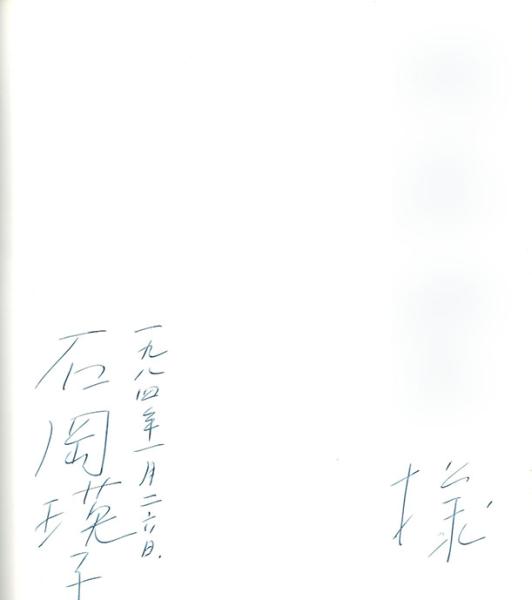 様
一九八四年一月二六日.
石岡瑛子